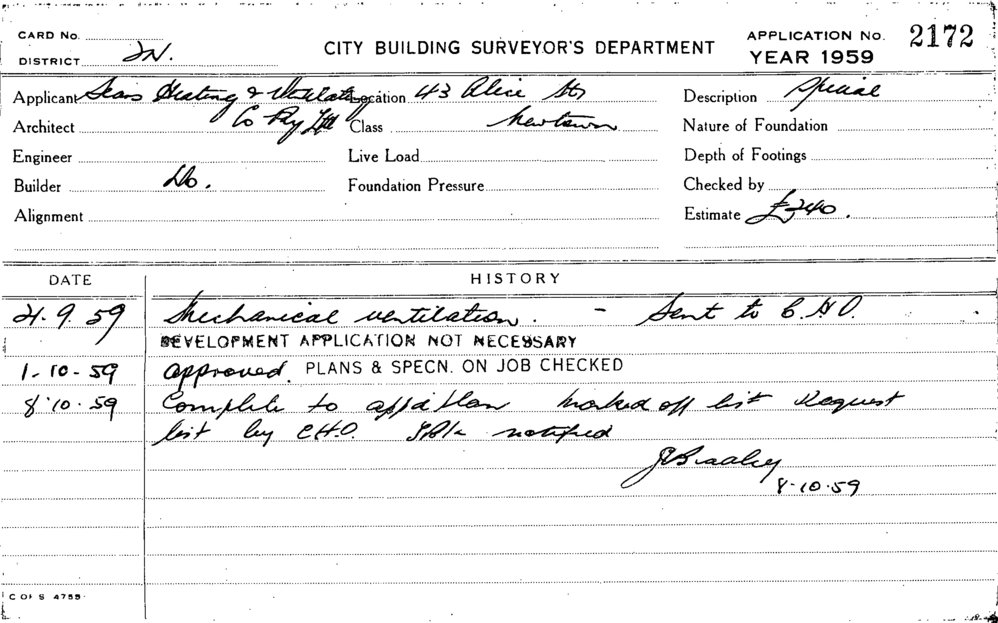 CARD No.
DISTRICT 2N.
CITY BUILDING SURVEYOR'S DEPARTMENT
APPLICATION No. 2172
YEAR 1959
Applicant Sears Heating & Ventilating Location 43 Alice St Description Special
Architect Co Pty Ltd Class Newtown Nature of Foundation
Engineer Live Load Depth of Footings
Builder Do. Foundation Pressure Checked by
Alignment Estimate £340.
DATE HISTORY
21.9.59 Mechanical ventilation. - Sent to C.H.O.
DEVELOPMENT APPLICATION NOT NECESSARY
1-10-59 approved. PLANS & SPECN. ON JOB CHECKED
8.10.59 Complete to app'd plan Marked off list Request
list by CHO. notified
JBradley
8-10-59
C OF S 4755